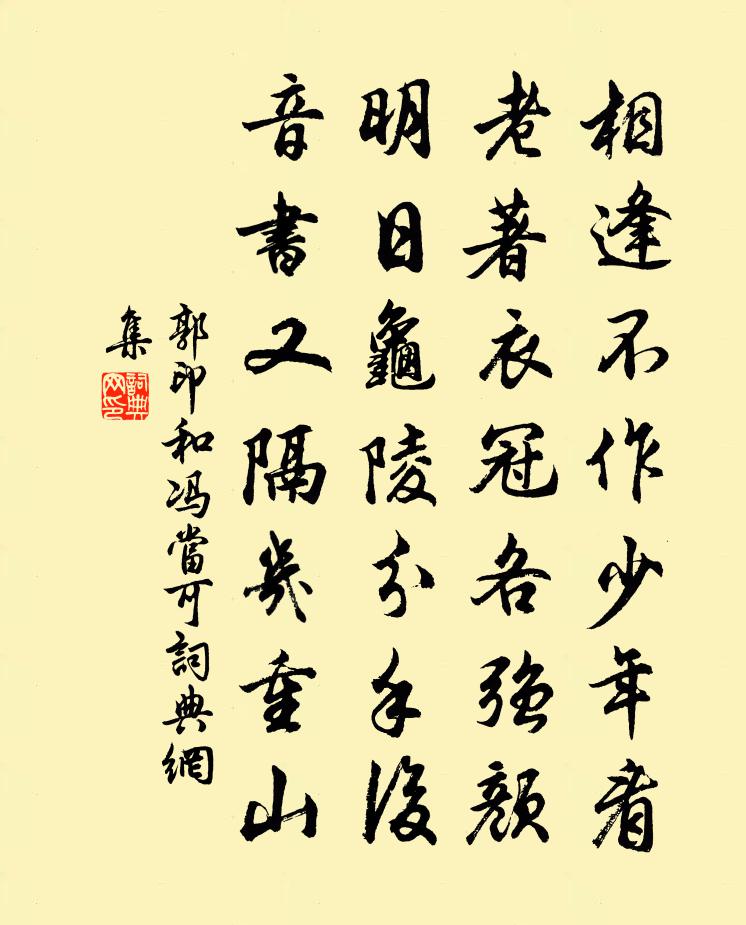 相逢不作少年看
老著衣冠各强顔
明日龜陵分手後
音書又隔幾重山
郭印和冯當可詞典網
集
詞典
网印